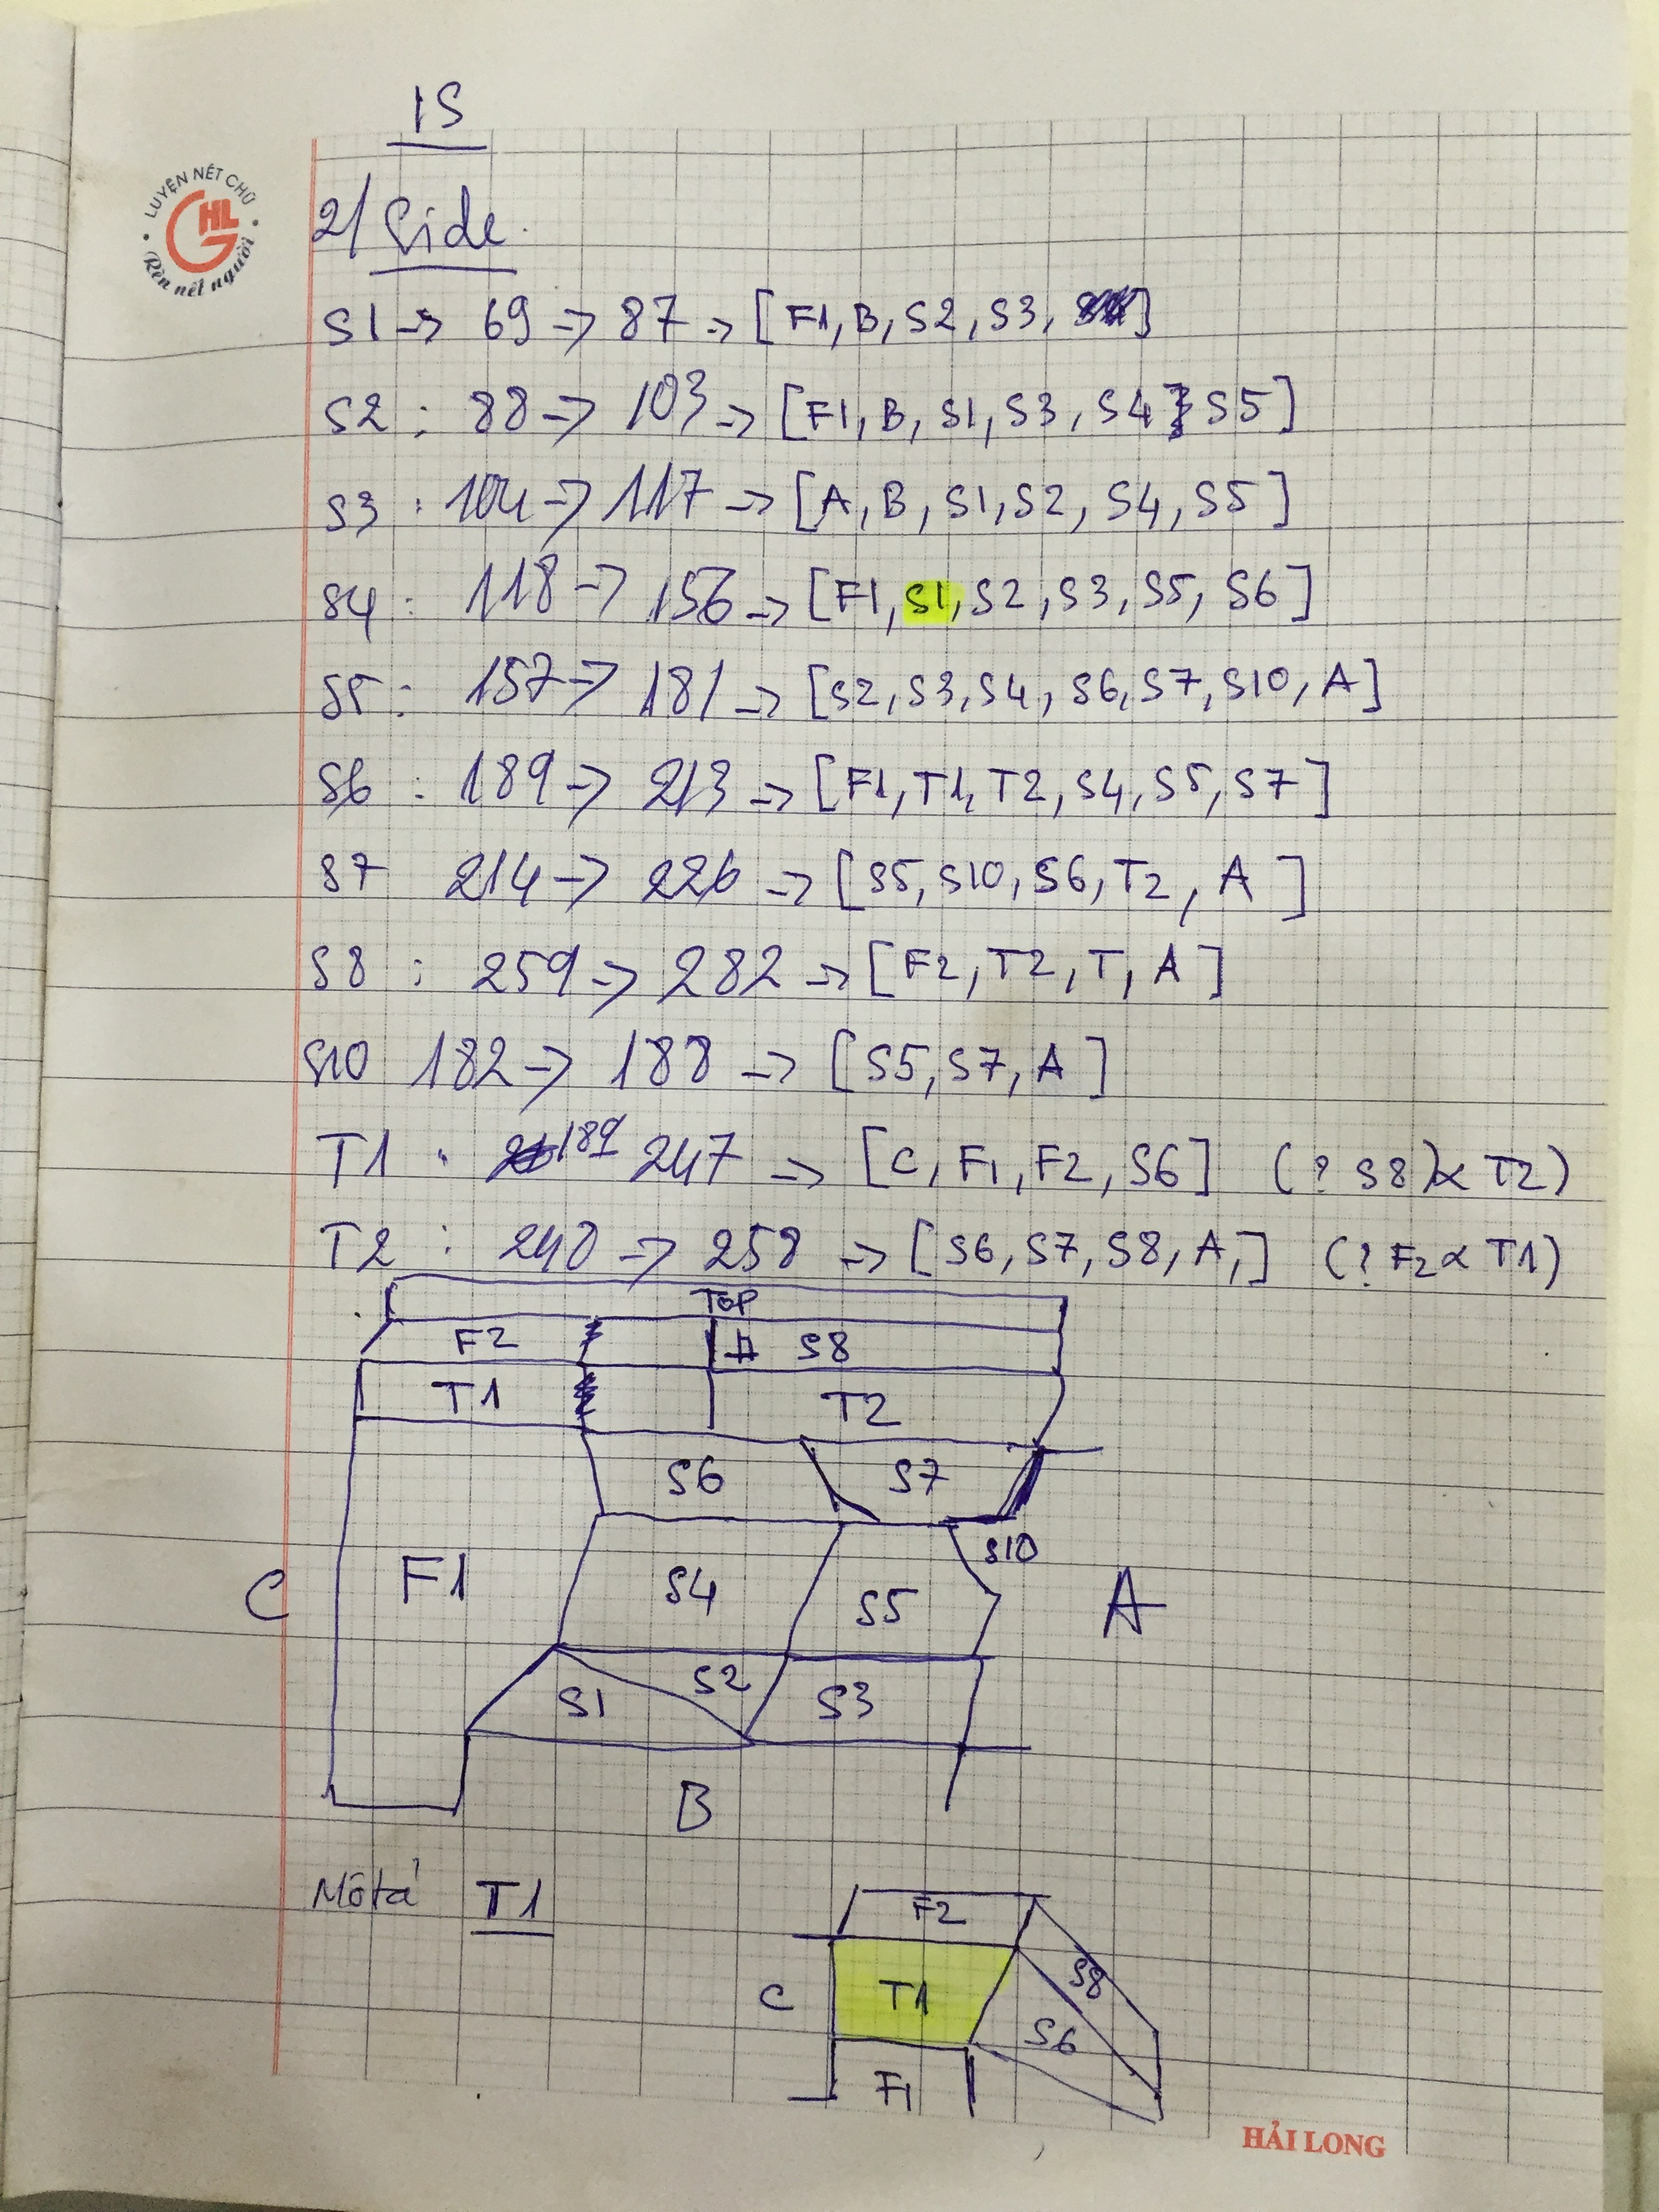 1S
LUYỆN NẾT CHỮ
HL
Rèn nết người
2/ Side.
S1 -> 69 -> 87 -> [F1, B, S2, S3, ]
S2 : 88 -> 103 -> [F1, B, S1, S3, S4, S5]
S3 : 104 -> 117 -> [A, B, S1, S2, S4, S5]
S4 : 118 -> 156 -> [F1, S1, S2, S3, S5, S6]
S5 : 157 -> 181 -> [S2, S3, S4, S6, S7, S10, A]
S6 : 189 -> 213 -> [F1, T1, T2, S4, S5, S7]
S7 214 -> 226 -> [S5, S10, S6, T2, A]
S8 : 259 -> 282 -> [F2, T2, T, A]
S10 182 -> 188 -> [S5, S7, A]
T1 : 189 247 -> [C, F1, F2, S6] (? S8 & T2)
T2 : 240 -> 258 -> [S6, S7, S8, A,] (? F2 & T1)
TOP
F2 S8
T1 T2
S6 S7
S10
C F1 S4 S5 A
S1 S2 S3
B
Mô tả T1
F2
C T1 S8
S6
F1
HẢI LONG